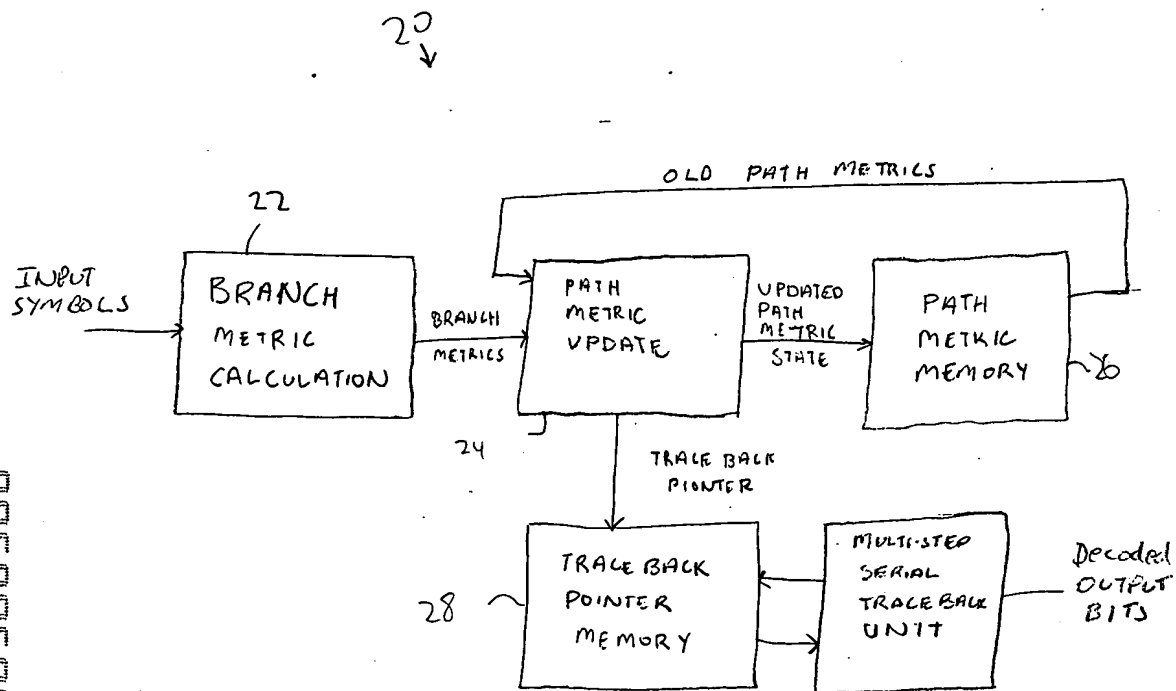 20
OLD PATH METRICS
22
INPUT
SYMBOLS
BRANCH
METRIC
CALCULATION
BRANCH
METRICS
PATH
METRIC
UPDATE
UPDATED
PATH
METRIC
STATE
PATH
METRIC
MEMORY
26
24
TRACE BACK
PIONTER
28
TRACE BACK
POINTER
MEMORY
MULTI-STEP
SERIAL
TRACE BACK
UNIT
Decoded
OUTPUT
BITS